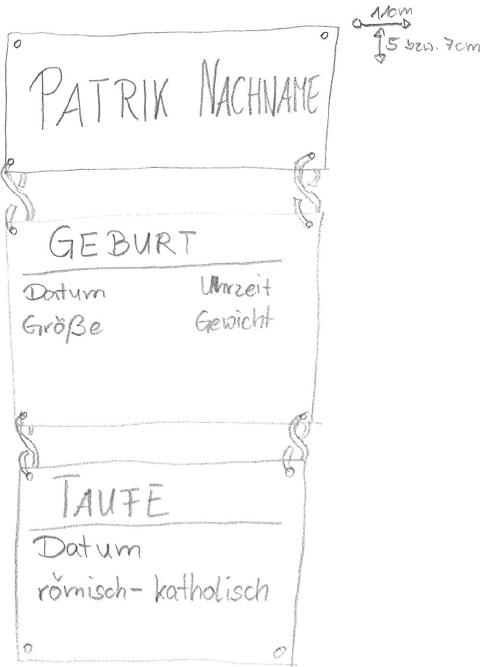 11cm
5 bzw. 7cm
PATRIK NACHNAME
GEBURT
Datum Uhrzeit
Größe Gewicht
TAUFE
Datum
römisch-katholisch